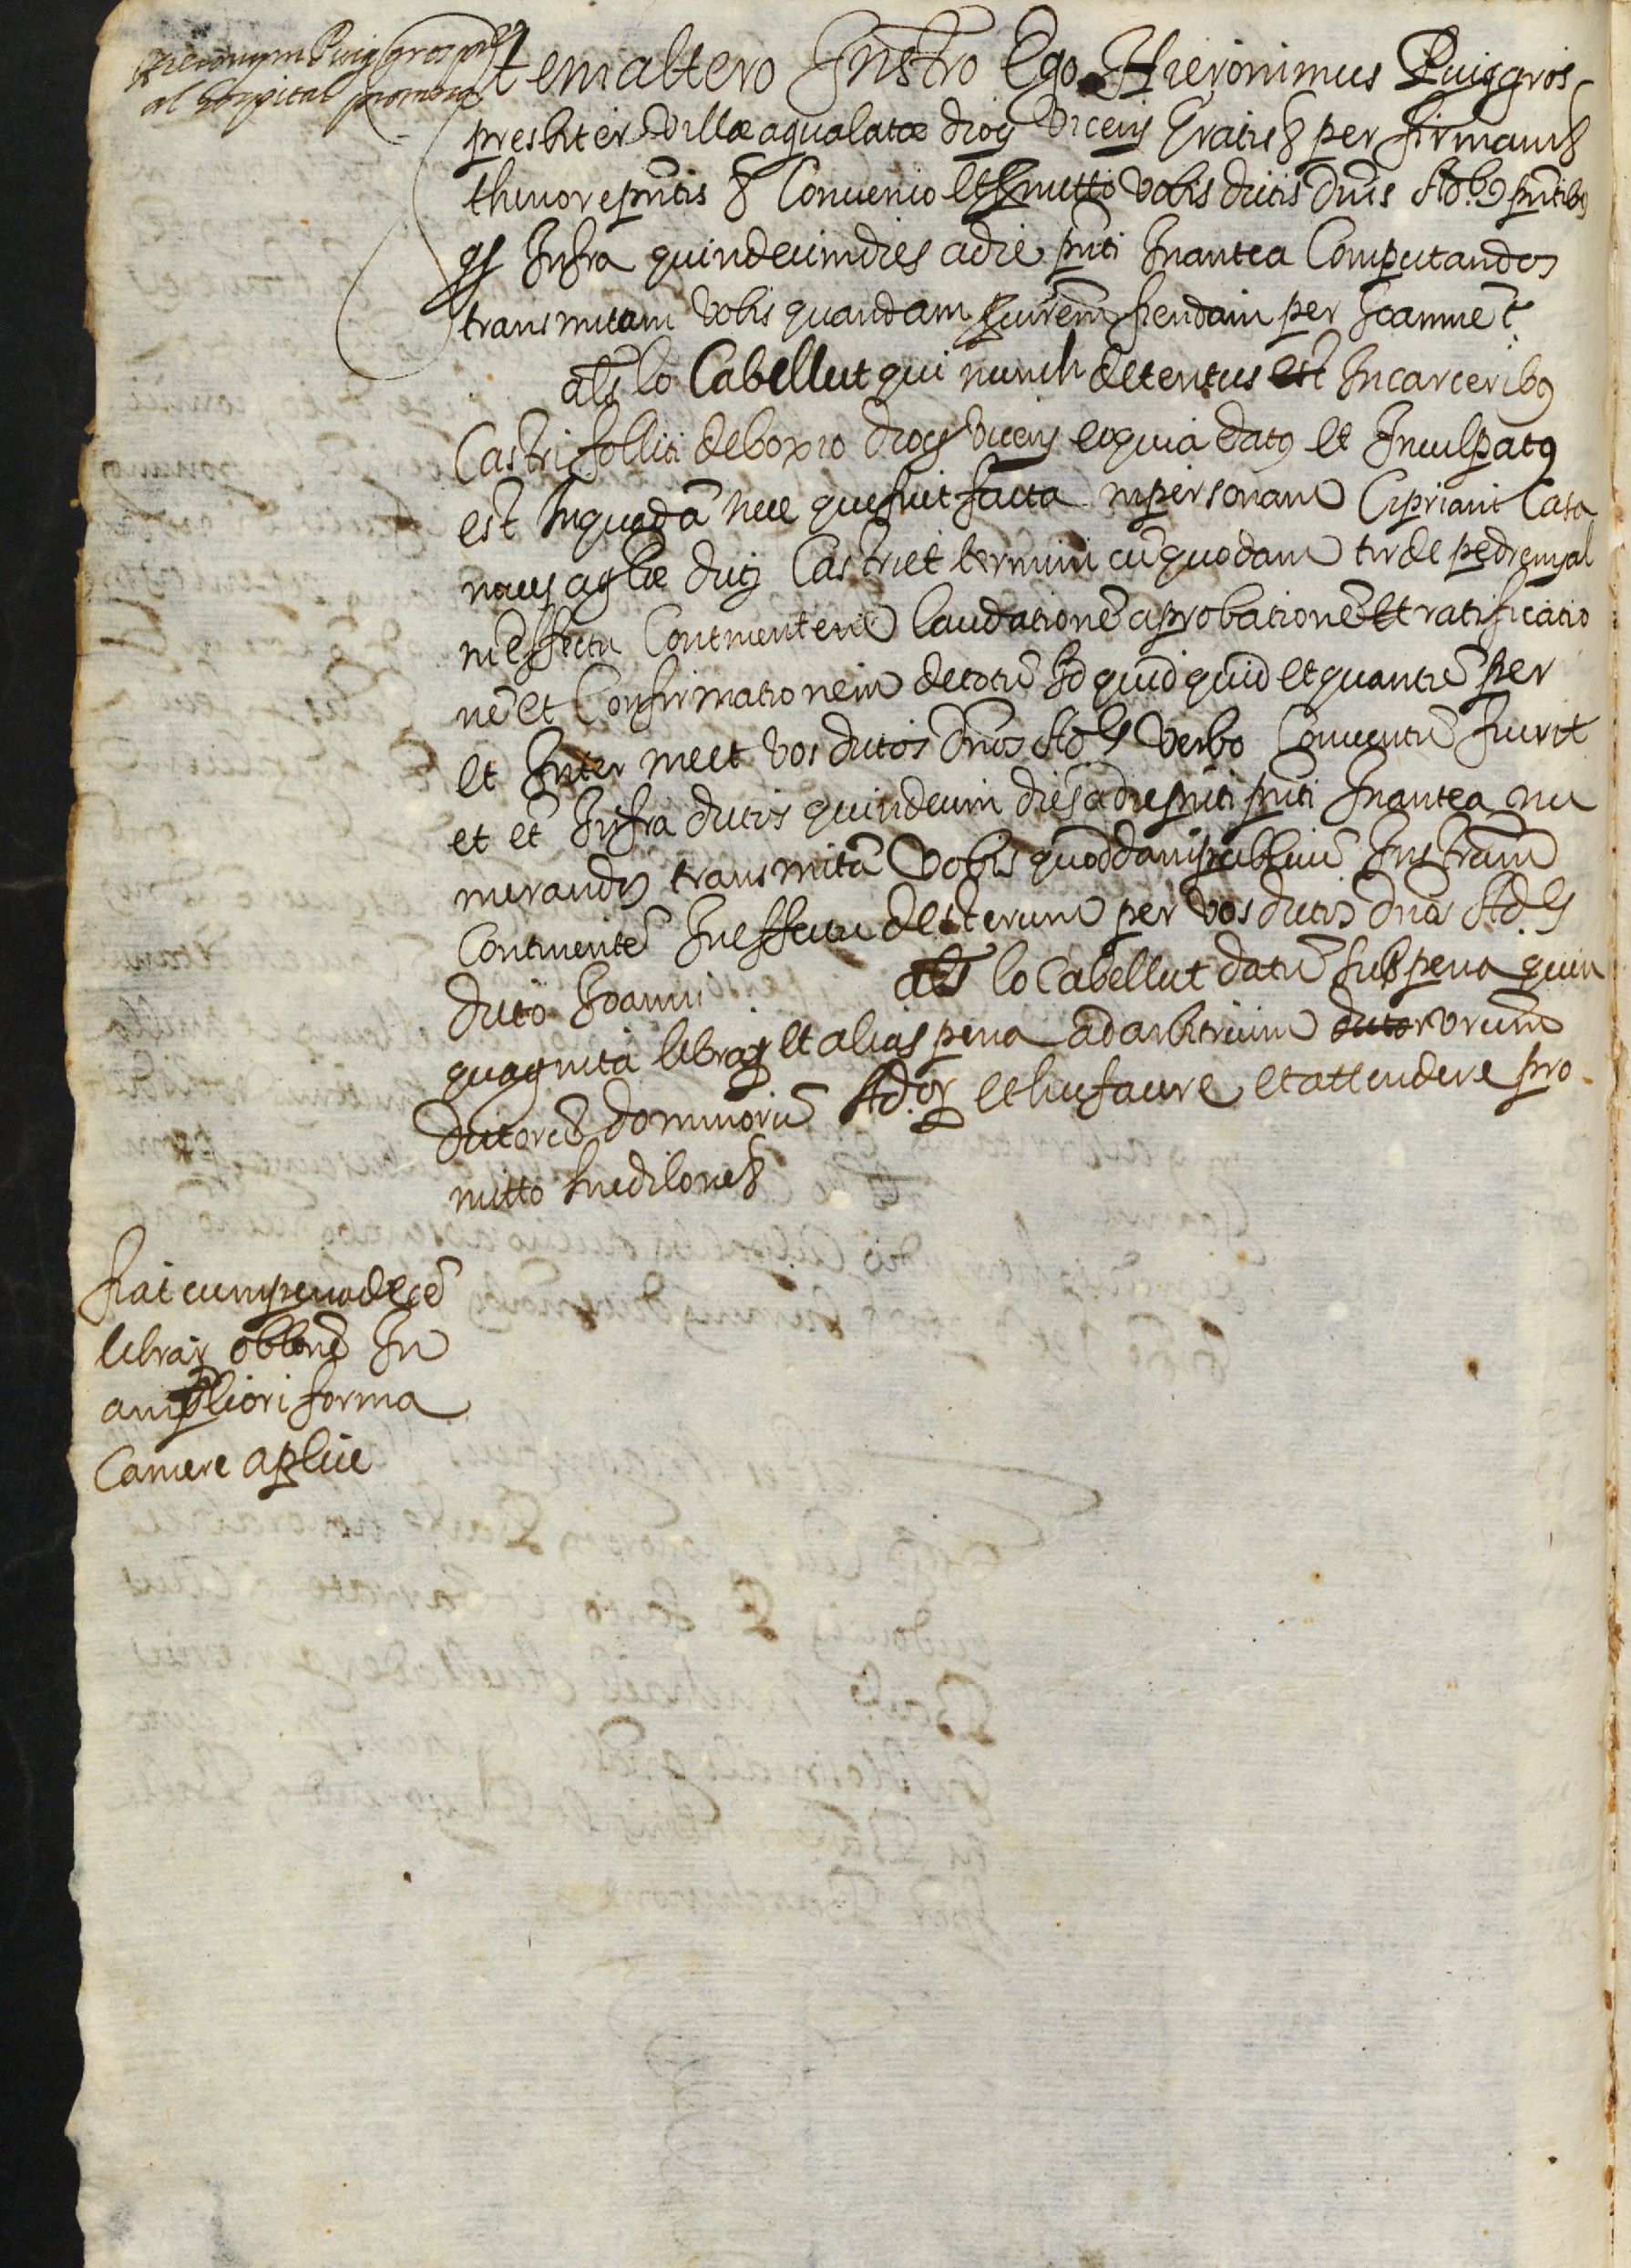 Hieronym Puiggros pre
al hospital promesa
Item altero Instro Ego Hieronimus Puiggros
presbiter Villæ aqualatæ diocs Vicens Gratis & per firmam &
thenore pntis & Convenio et promitto vobis dictis dnis Adbus pntibus
qs Infra quindecim dies a die pnti Inantea Computandos
transmitam vobis quandam fiendam per Joannem
als lo Cabellut qui nunch detentus est In carceribus
Castri folliti de boxio diocs Vicens eo quia datus et Inculpatus
est In quadã nece que fuit facta in personam Cipriani Casa
naus aglæ dicti Castri et termini cũ quodam tir de pedrenyal
in effectu Continentem laudationẽ aprobationẽ et ratificatio
nẽ et Confirmationem de totũ Id quidquid et quantũ per
et Inter me et vos dictos dnos Ads verbo Conventũ fuerit
et et Infra dictos quindecim dies a die pnti pnti Inantea nu
merandos transmitã Vobis quoddam publicũ Instrum
Continentẽ In effectu per vos dictos dnos Ads
dicto Joanni als lo Cabellut datũ sub pena quin
quaginta librar et alias pena ad arbitrium dictorum vrum
dictorũ dominorũ Ador et hec facere et attendere pro
mitto
fiat cum pena decẽ
librar obblone In
ampliori forma
Camere aplice